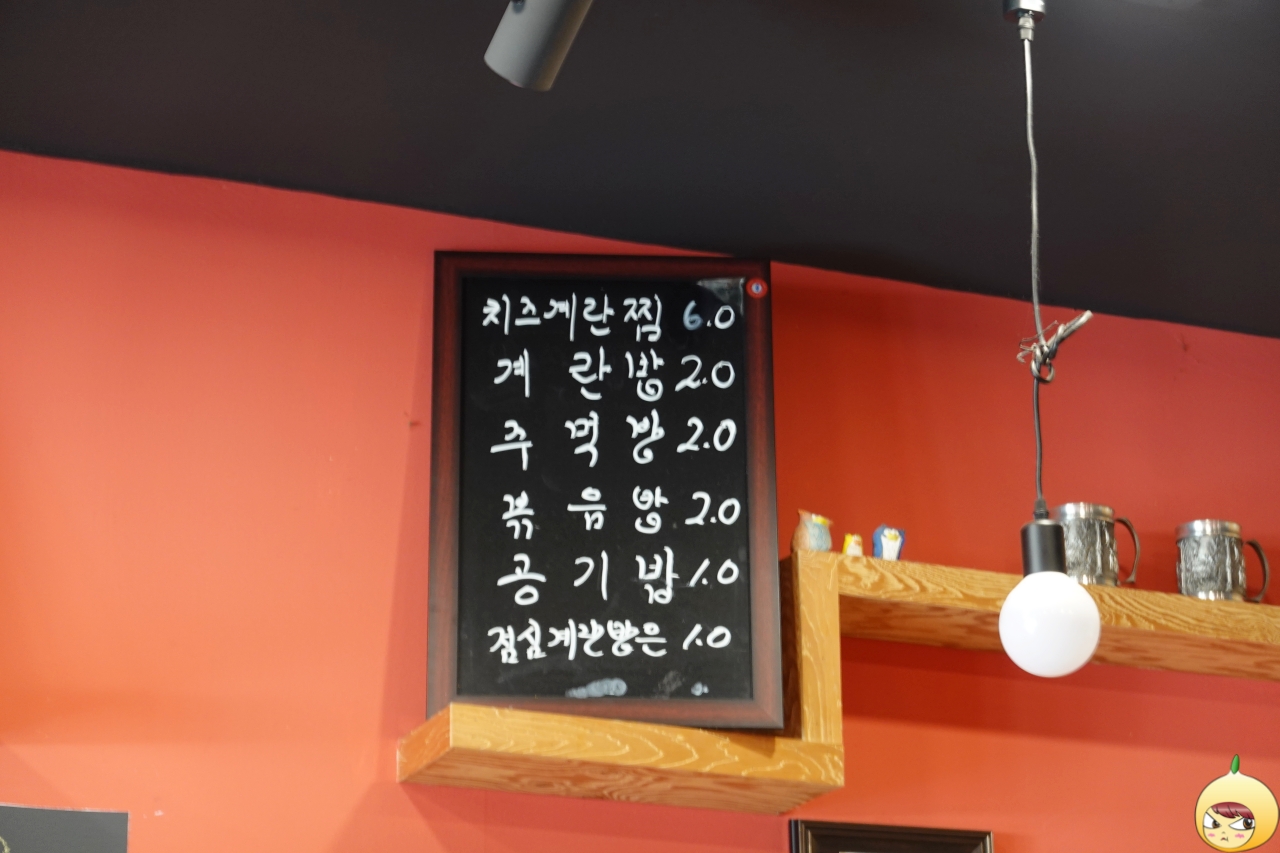 치즈계란찜 6.0
계란밥 2.0
주먹밥 2.0
볶음밥 2.0
공기밥 1.0
점심계란밥은 1.0